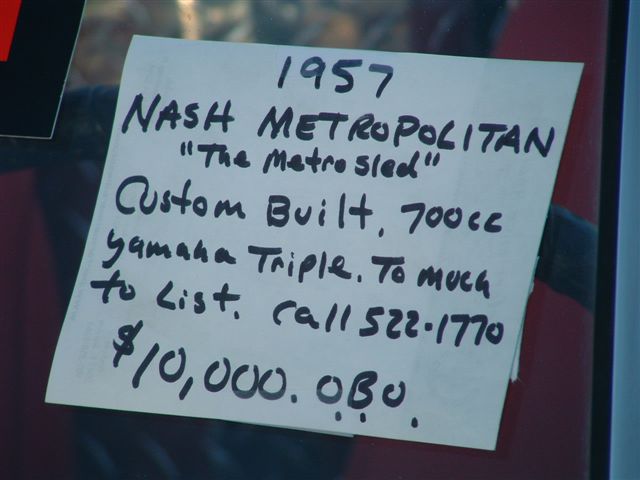 1957
NASH METROPOLITAN
"The Metro sled"
Custom Built, 700cc
yamaha Triple. To much
to List. Call 522-1770
$10,000. OBO.